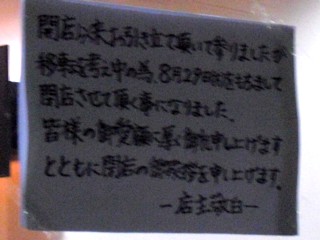 開店以来お引き立て頂いて参りましたが
移転を考え中の為、8月29日をもちまして
閉店させて頂く事になりました。
皆様の御愛顧に厚く御礼申し上げます
とともに閉店の御挨拶を申し上げます。
―店主敬白―